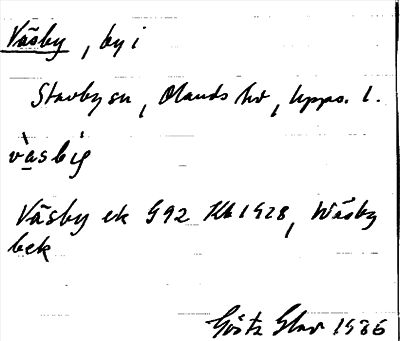 Väsby, by i
Stavby sn, Olands hd, Upps. l.
vàsbig
Väsby ek G92 Kb 1928, Wäsby
bek
Götz Glav 1936